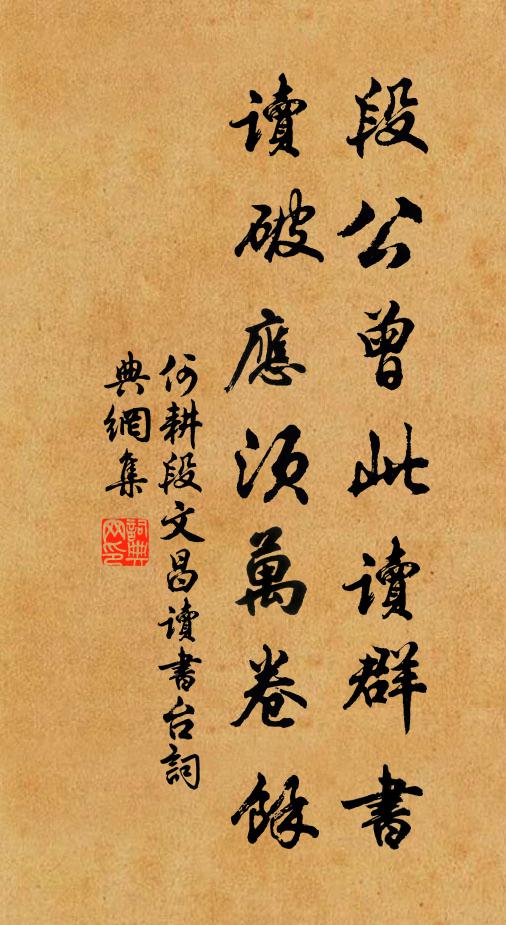 段公曾此讀群書
讀破應須萬卷餘
何耕段文昌讀書台詞
典網集
詞典网印